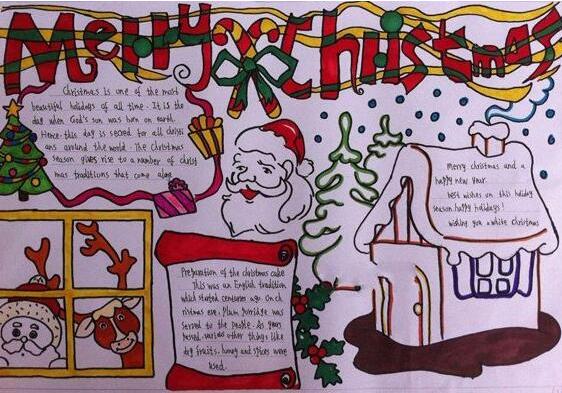 Merry Christmas
Christmas is one of the most
beautiful holidays of all time. It is the
day when God's son was born on earth.
Hence, this day is sacred for all christi
ans around the world. The Christmas
season gives rise to a number of christ
mas traditions that come along
Merry christmas and a
happy new year.
best wishes on this holiday
season. happy holidays!
wishing you a white christmas
Preparation of the christmas cake
This was an English tradition
which started centuries ago. On ch
ristmas eve, Plum porridge was
served to the people. As years
passed, various other things like
dry fruits, honey and spices were
used.